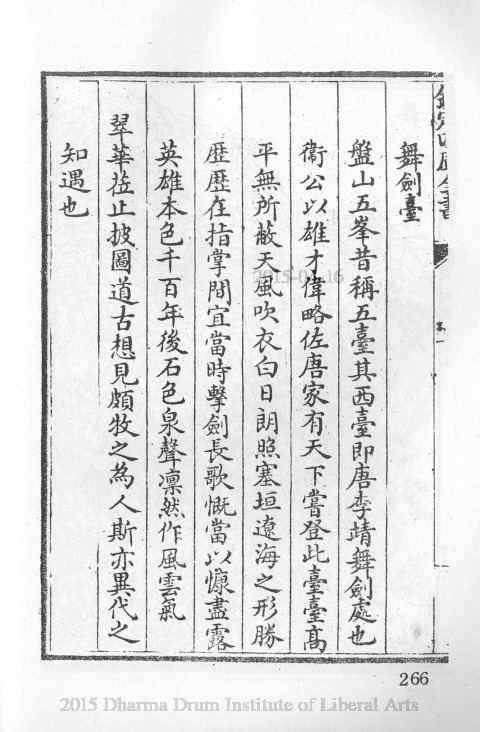 欽定四庫全書
舞劍臺
盤山五峯昔稱五臺其西臺即唐李靖舞劍處也
衞公以雄才偉略佐唐家有天下嘗登此臺臺高
平無所蔽天風吹衣白日朗照塞垣遼海之形勝
歴歴在指掌間宜當時擊劍長歌慨當以慷盡露
英雄本色千百年後石色泉聲凛然作風雲氣
翠華莅止披圖道古想見頗牧之為人斯亦異代之
知遇也
266
2015 Dharma Drum Institute of Liberal Arts